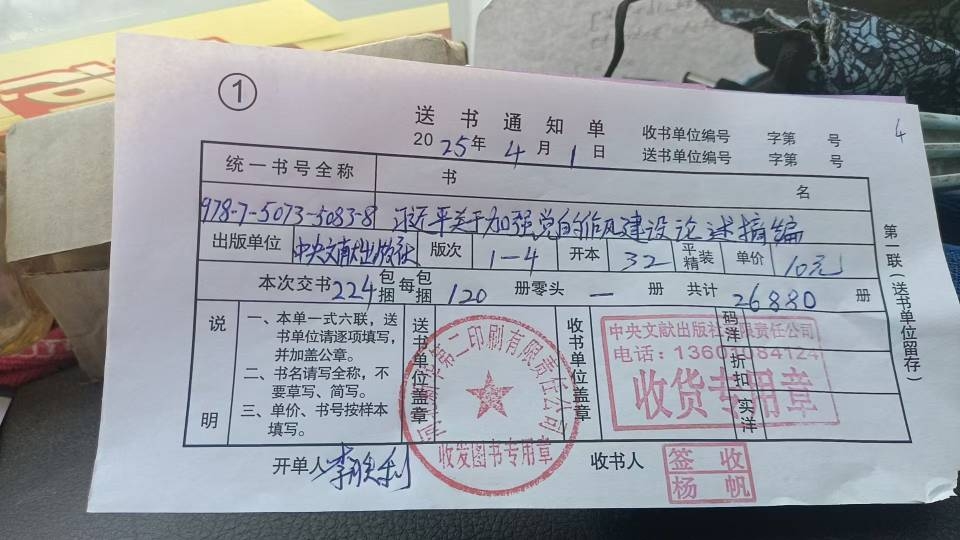 ①
送书通知单
4
2025年4月1日
收书单位编号 字第 号
送书单位编号 字第 号
统一书号全称 书 名
978-7-5073-5083-8 习近平关于加强党的作风建设论述摘编
出版单位 中央文献出版社 版次 1-4 开本 32 平精装 单价 10元
本次交书 224 包捆 每包捆 120 册零头 — 册 共计 26880 册
说明
一、本单一式六联,送
书单位请逐项填写,
并加盖公章。
二、书名请写全称,不
要草写、简写。
三、单价、书号按样本
填写。
送书单位盖章
第二印刷有限责任公司
收发图书专用章
收书单位盖章
中央文献出版社有限责任公司
电话:13601084124
收货专用章
码洋
折扣
实洋
第一联(送书单位留存)
开单人 李欣利
收书人
签收
杨帆